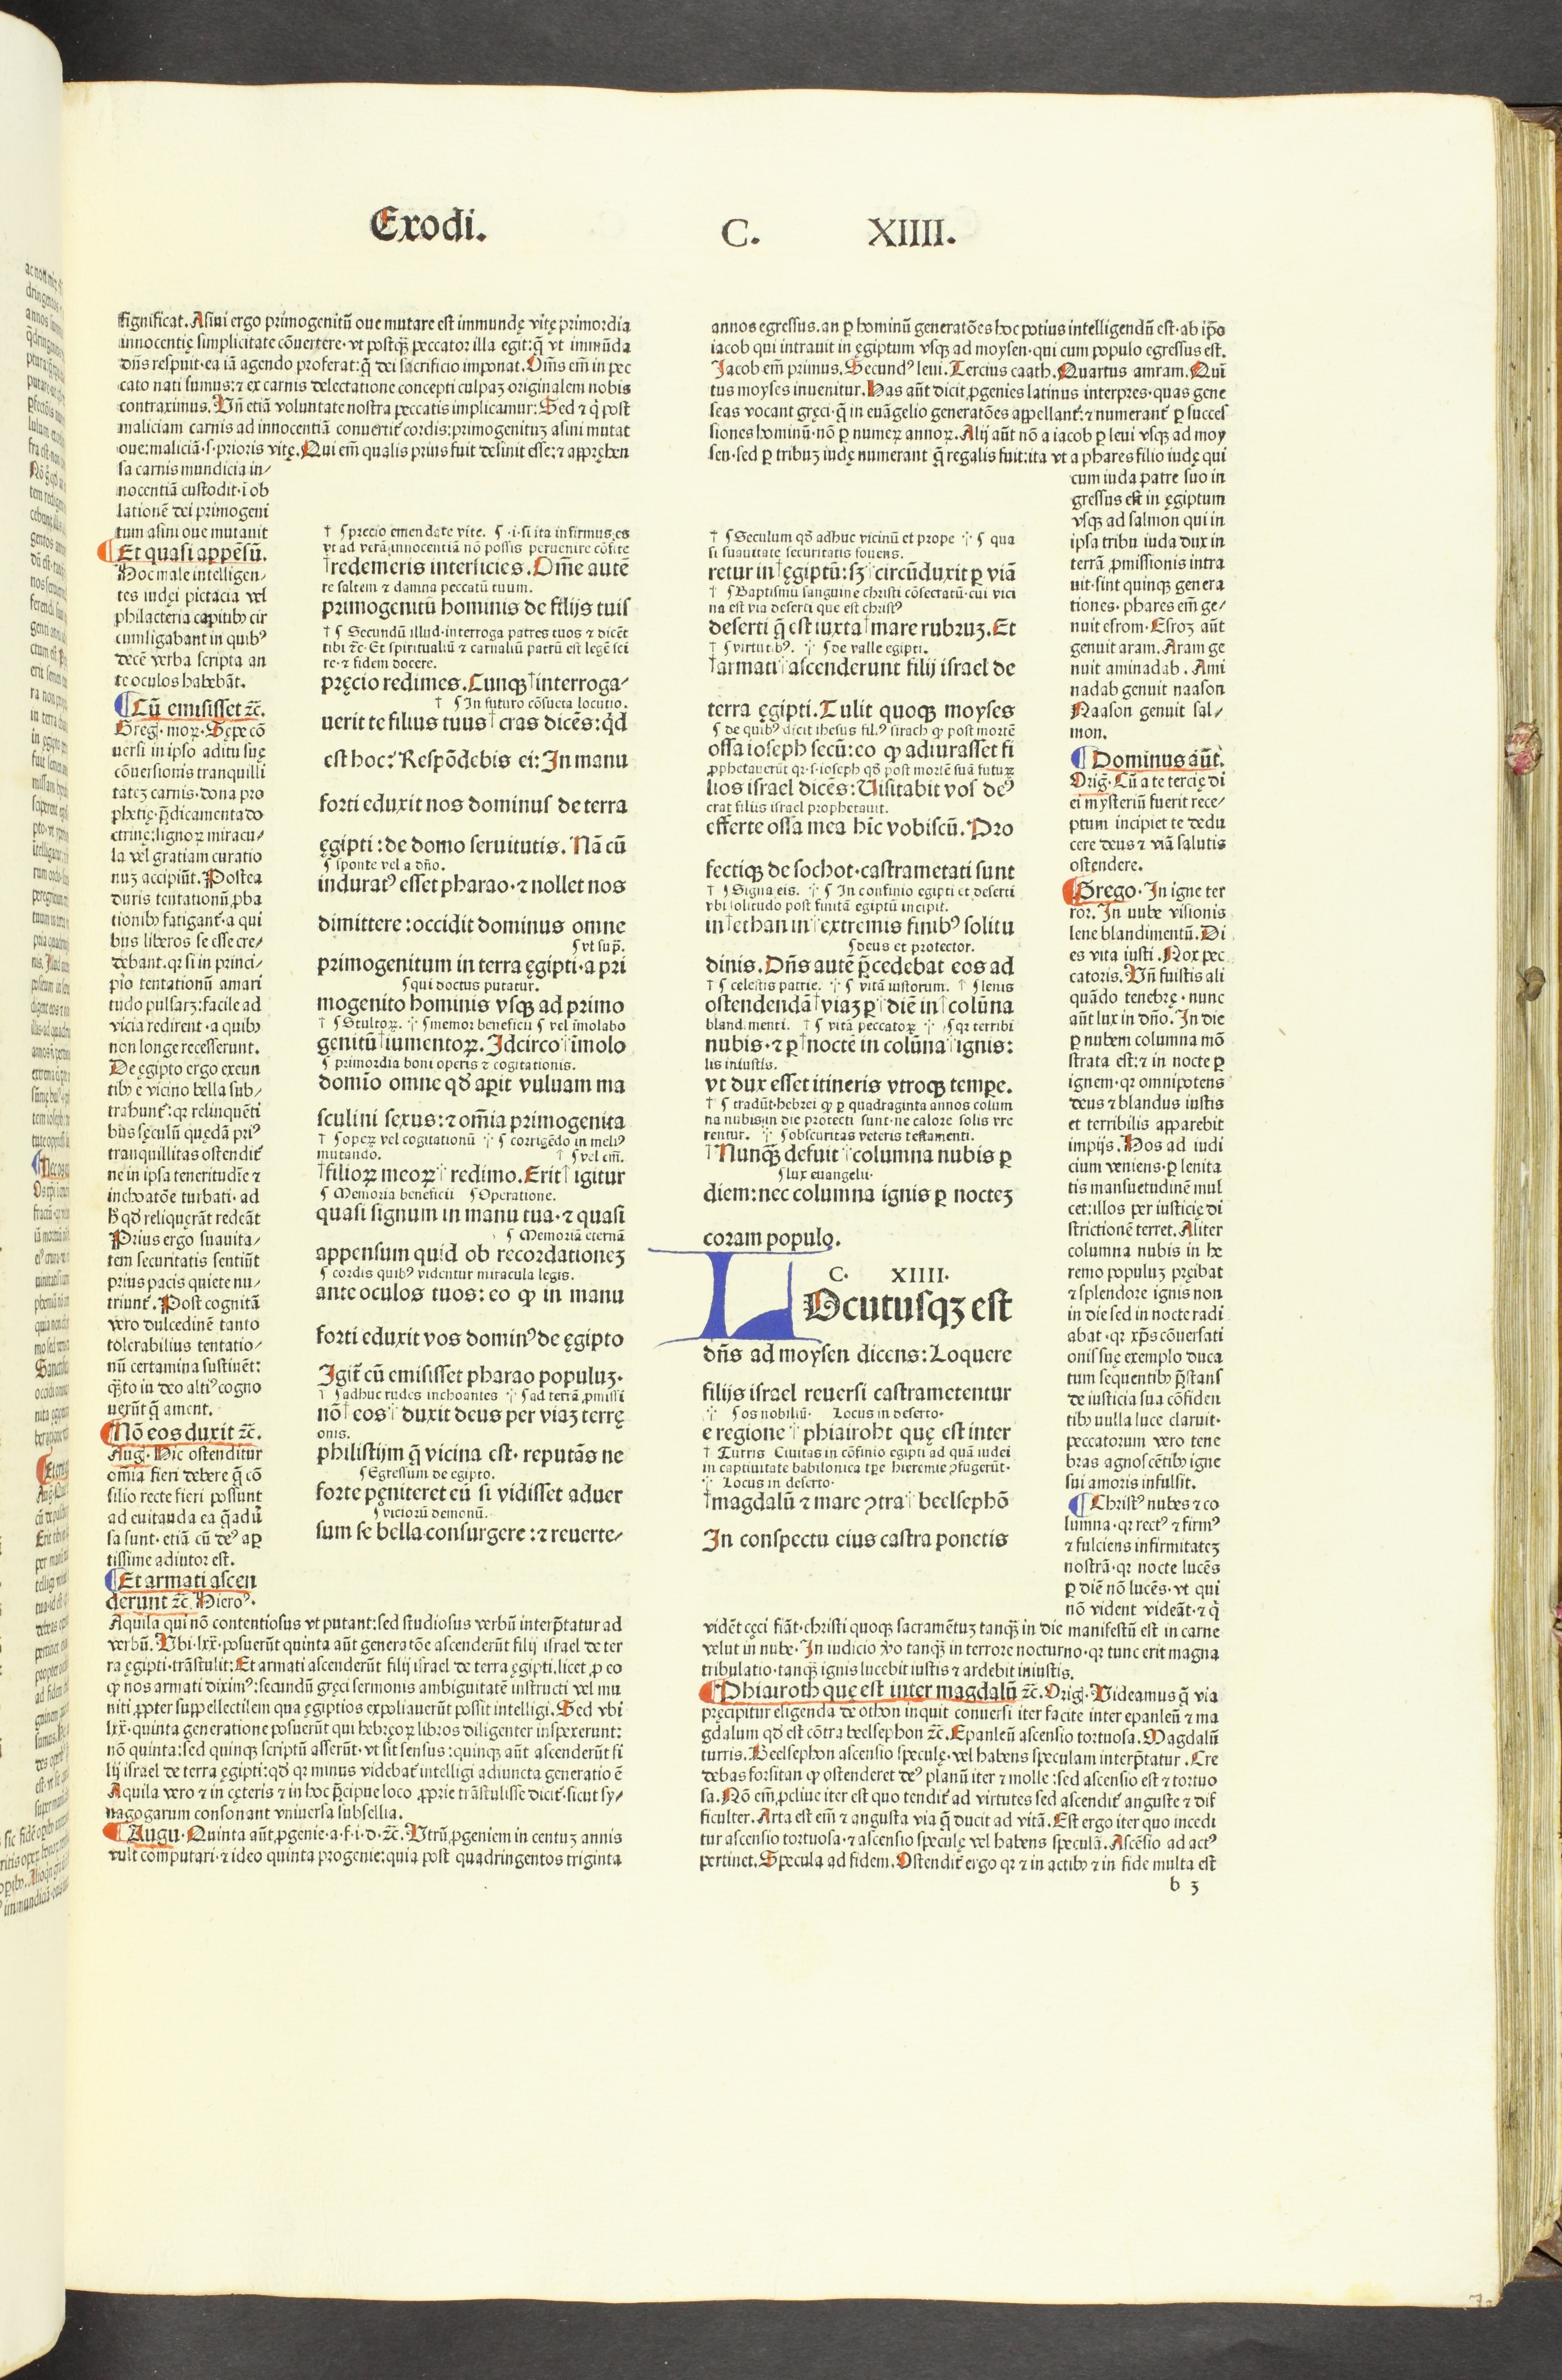 Exodi.
C. XIIII.
ſignificat. Aſini ergo primogenitū oue mutare eſt immundę vitę primordia
innocentię ſimplicitate cōuertere· vt poſtq̄ꝫ peccator illa egit: q̄ vt immūda
dn̄s reſpuit· ea iā agendo proferat: q̄ dei ſacrificio imponat. Om̄s em̄ in pec
cato nati ſumus: ⁊ ex carnis delectatione concepti culpaꝫ originalem nobis
contraximus. Un̄ etiā voluntate noſtra peccatis implicamur: Sed ⁊ q̇ poſt
maliciam carnis ad innocentiā conuertit᷑ cordis: primogenituꝫ aſini mutat
oue: maliciā· ſ· prioris vitę. Qui em̄ qualis prius fuit deſinit eſſe: ⁊ apprehen
ſa carnis mundicia in⸗
nocentiā cuſtodit· i ob
lationē dei primogeni
tum aſini oue mutauit
¶ Et quaſi appēſū.
Hoc male intelligen⸗
tes iudęi pictacia vel
philacteria capitibꝫ cir
cumligabant in quibꝰ
decē verba ſcripta an
te oculos habebāt.
¶ Cū emiſiſſet ⁊c̄.
Greg. moꝝ. Sępe cō
uerſi in ipſo aditu ſuę
cōuerſionis tranquilli
tateꝫ carnis· dona pro
phetię· p̄dicamenta do
ctrinę: lignoꝝ miracu⸗
la vel gratiam curatio
nuꝫ accipiūt. Poſtea
duris tentationū ꝓba
tionibꝫ fatigant᷑· a qui
bus liberos ſe eſſe cre⸗
debant. qꝛ ſi in princi⸗
pio tentationū amari
tudo pulſaꝛꝫ: facile ad
vicia redirent· a quibꝫ
non longe receſſerunt.
De ęgipto ergo exeun
tibꝫ e vicino bella ſub⸗
trahunt᷑: qꝛ relinquēti
bus ſęculū quędā priꝰ
tranquillitas oſtendit᷑
ne in ipſa teneritudīe ⁊
inchoatōe turbati· ad
h̄ qd̄ reliquerāt redeāt
Prius ergo ſuauita⸗
tem ſecuritatis ſentiūt
prius pacis quiete nu⸗
triunt᷑. Poſt cognitā
vero dulcedinē tanto
tolerabilius tentatio⸗
nū certamina ſuſtinēt:
q̄ꝫto in deo altiꝰ cogno
uerūt q̄ ament.
¶ Nō eos duxit ⁊c̄.
Aug. Hic oſtenditur
om̄ia fieri debere q̄ cō
ſilio recte fieri poſſunt
ad euitanda ea q̄ adū
ſa ſunt· etiā cū deꝰ ap
tiſſime adiutor eſt.
¶ Et armati aſcen
derunt ⁊c̄. Hieroꝰ.
Aquila qui nō contentioſus vt putant: ſed ſtudioſus verbū interp̄tatur ad
verbū. Ubi· lxx̄· poſuerūt quinta aūt generatōe aſcenderūt filij iſrael de ter
ra ęgipti· trāſtulit: Et armati aſcenderūt filij iſrael de terra ęgipti. licet ꝓ eo
ꝙ nos armati diximꝰ: ſecundū gręci ſermonis ambiguitatē inſtructi vel mu
niti ꝓpter ſuppellectilem qua ęgiptios expoliauerūt poſſit intelligi. Sed vbi
lxx̄· quinta generatione poſuerūt qui hebręoꝝ libros diligenter inſpexerunt:
nō quinta: ſed quinqꝫ ſcriptū aſſerūt· vt ſit ſenſus: quinqꝫ aūt aſcenderūt fi
lij iſrael de terra ęgipti: qd̄ qꝛ minus videbat᷑ intelligi adiuncta generatio ē
Aquila vero ⁊ in cęteris ⁊ in hoc p̄cipue loco ꝓprie trāſtuliſſe dicit᷑· ſicut ſy⸗
nagogarum conſonant vniuerſa ſubſellia.
¶ Augu· Quinta aūt ꝓgenie· a· f· i· d· ⁊c̄. Utrū ꝓgeniem in centuꝫ annis
vult computari· ⁊ ideo quinta progenie: quia poſt quadringentos triginta
† ¶ precio emendate vite. ¶ ·i· ſi ita infirmus es
vt ad verā innocentiā nō poſſis peruenire cōfite
†redemeris interficies. Om̄e autē
re ſaltem ⁊ damna peccatū tuum.
primogenitū hominis de filijs tuiſ
† ¶ Secundū illud· interroga patres tuos ⁊ dicēt
tibi ⁊c̄· Et ſpiritualiū ⁊ carnaliū patrū eſt legē ſci
re· ⁊ fidem docere.
pręcio redimes. Cunqꝫ †interroga⸗
† ¶ In futuro cōſueta locutio.
uerit te filius tuus †cras dicēs: qd̄
eſt hoc: Reſpōdebis ei: In manu
forti eduxit nos dominuſ de terra
ęgipti: de domo ſeruitutis. Nā cū
¶ ſponte vel a dn̄o.
induratꝰ eſſet pharao· ⁊ nollet nos
dimittere: occidit dominus omne
¶ vt ſup̄.
primogenitum in terra ęgipti· a pri
¶ qui doctus putatur.
mogenito hominis vſqꝫ ad primo
† ¶ Stultoꝝ. ⁘ ¶ memor beneficii ¶ vel īmolabo
genitū †iumentoꝝ. Idcirco †īmolo
¶ primordia boni operis ⁊ cogitationis.
domīo omne qd̄ aperit vuluam ma
ſculini ſexus: ⁊ om̄ia primogenita
† ¶ opeꝝ vel cogitationū ⁘ ¶ corrigēdo in meliꝰ
mutando. † ¶ vel em̄.
†filioꝝ meoꝝ †redimo. Erit †igitur
¶ Memoria beneficii ¶ Operatione.
quaſi ſignum in manu tua· ⁊ quaſi
¶ Memoriā eternā
appenſum quid ob recordationeꝫ
¶ cordis quibꝰ videntur miracula legis.
ante oculos tuos: eo ꝙ in manu
forti eduxit vos dominꝰ de ęgipto
Igit᷑ cū emiſiſſet pharao populuꝫ·
† ¶ adhuc rudes inchoantes ⁘ ¶ ad terrā ꝓmiſſi
nō †eos †duxit deus per viaꝫ terrę
onis.
philiſtijm q̄ vicina eſt· reputās ne
¶ Egreſſum de egipto.
forte pęniteret eū ſi vidiſſet aduer
¶ viciorū demonū.
ſum ſe bella conſurgere: ⁊ reuerte⸗
annos egreſſus. an ꝑ hominū generatōes hoc potius intelligendū eſt· ab ip̄o
iacob qui intrauit in ęgiptum vſqꝫ ad moyſen· qui cum populo egreſſus eſt.
Jacob em̄ primus. Secundꝰ leui. Tercius caath. Quartus amram. Quī
tus moyſes inuenitur. Has aūt dicit ꝓgenies latinus interpres· quas gene
ſeas vocant gręci· q̄ in euāgelio generatōes appellant᷑: ⁊ numerant᷑ ꝑ ſucceſ
ſiones hominū· nō ꝑ numeꝝ annoꝝ. Alij aūt nō a iacob ꝑ leui vſqꝫ ad moy
ſen· ſed ꝑ tribuꝫ iudę numerant q̄ regalis fuit: ita vt a phares filio iudę qui
cum iuda patre ſuo in
greſſus eſt in ęgiptum
vſqꝫ ad ſalmon qui in
ipſa tribu iuda dux in
terrā ꝓmiſſionis intra
uit· ſint quinqꝫ genera
tiones· phares em̄ ge⸗
nuit eſrom· Eſroꝫ aūt
genuit aram. Aram ge
nuit aminadab. Ami
nadab genuit naaſon
Naaſon genuit ſal⸗
mon.
¶ Dominus aūt.
Oriḡ. Cū a te tercię di
ei myſteriū fuerit rece⸗
ptum incipiet te dedu
cere deus ⁊ viā ſalutis
oſtendere.
¶ Grego· In igne ter
ror. In nube viſionis
lene blandimentū. Di
es vita iuſti. Nox pec
catoris. Un̄ fuiſtis ali
quādo tenebrę· nunc
aūt lux in dn̄o. In die
ꝑ nubem columna mō
ſtrata eſt: ⁊ in nocte ꝑ
ignem· qꝛ omnipotens
deus ⁊ blandus iuſtis
et terribilis apparebit
impijs. Hos ad iudi
cium veniens· ꝑ lenita
tis manſuetudinē mul
cet: illos per iuſticię di
ſtrictionē terret. Aliter
columna nubis in he
remo populuꝫ pręibat
⁊ ſplendore ignis non
in die ſed in nocte radi
abat· qꝛ xp̄s cōuerſati
onis ſuę exemplo duca
tum ſequentibꝫ p̄ſtanſ
de iuſticia ſua cōfiden
tibꝫ nulla luce claruit·
peccatorum vero tene
bras agnoſcētibꝫ igne
ſui amoris infulſit.
¶ Chriſtꝰ nubes ⁊ co
lumna· qꝛ rectꝰ ⁊ firmꝰ
⁊ fulciens infirmitateꝫ
noſtrā· qꝛ nocte lucēs
ꝑ diē nō lucēs· vt qui
nō vident videāt· ⁊ q̇
vidēt cęci fiāt· chriſti quoqꝫ ſacramētuꝫ tanq̄ꝫ in die manifeſtū eſt in carne
velut in nube· In iudicio v̄o tanq̄ꝫ in terrore nocturno· qꝛ tunc erit magna
tribulatio· tanq̄ꝫ ignis lucebit iuſtis ⁊ ardebit iniuſtis.
¶ Phiairoth quę eſt inter magdalū ⁊c̄. Oriḡ. Videamus q̄ via
pręcipitur eligenda de othon inquit conuerſi iter facite inter epanleū ⁊ ma
gdalum qd̄ eſt cōtra beelſephon ⁊c̄. Epanleū aſcenſio tortuoſa. Magdalū
turris. Beelſephon aſcenſio ſpeculę· vel habens ſpeculam interp̄tatur. Cre
debas forſitan ꝙ oſtenderet deꝰ planū iter ⁊ molle: ſed aſcenſio eſt ⁊ tortuo
ſa. Nō em̄ ꝓcliue iter eſt quo tendit᷑ ad virtutes ſed aſcendit᷑ anguſte ⁊ dif
ficulter. Arta eſt em̄ ⁊ anguſta via q̄ ducit ad vitā. Eſt ergo iter quo incedi
tur aſcenſio tortuoſa· ⁊ aſcenſio ſpeculę vel habens ſpeculā. Aſcēſio ad actꝰ
pertinet. Specula ad fidem. Oſtendit᷑ ergo qꝛ ⁊ in actibꝫ ⁊ in fide multa eſt
† ¶ Seculum qd̄ adhuc vicinū et prope ⁘ ¶ qua
ſi ſuauitate ſecuritatis fouens.
retur in †ęgiptū: ſꝫ †circūduxit ꝑ viā
† ¶ Baptiſmū ſanguine chriſti cōſecratū· cui vici
na eſt via deſerti que eſt chriſtꝰ
deſerti q̄ eſt iuxta †mare rubruꝫ. Et
† ¶ virtutibꝰ. ⁘ ¶ de valle egipti.
†armati †aſcenderunt filij iſrael de
terra ęgipti. Tulit quoqꝫ moyſes
¶ de quibꝰ dicit iheſus filꝰ ſirach ꝙ poſt mortē
oſſa ioſeph ſecū: eo ꝙ adiuraſſet fi
ꝓphetauerūt qꝛ· ſ· ioſeph qd̄ poſt mortē ſuā futuꝝ
lios iſrael dicēs: Viſitabit voſ deꝰ
erat filiis iſrael prophetauit.
efferte oſſa mea hīc vobiſcū. Pro
fectiqꝫ de ſochot· caſtrametati ſunt
† ¶ Signa eis. ⁘ ¶ In confinio egipti et deſerti
vbi ſolitudo poſt finitā egiptū incipit.
in †ethan in †extremis finibꝰ ſolitu
¶ deus et protector.
dinis. Dn̄s autē p̄cedebat eos ad
† ¶ celeſtis patrie. ⁘ ¶ vitā iuſtorum. † ¶ lenis
oſtendendā †viaꝫ ꝑ †diē in †colūna
blandimenti. † ¶ vitā peccatoꝝ ⁘ ¶ qꝛ terribi
nubis· ⁊ ꝑ †noctē in colūna †ignis:
lis iniuſtis.
vt dux eſſet itineris vtroqꝫ tempe.
† ¶ tradūt hebrei ꝙ ꝑ quadraginta annos colum
na nubis in die protecti ſunt· ne calore ſolis vre
rentur. ⁘ ¶ obſcuritas veteris teſtamenti.
†Nunq̄ꝫ defuit †columna nubis ꝑ
¶ lux euangelii·
diem: nec columna ignis ꝑ nocteꝫ
coram populo.
C. XIIII.
LOcutuſqꝫ eſt
dn̄s ad moyſen dicens: Loquere
filijs iſrael reuerſi caſtrametentur
⁘ ¶ os nobiliū· Locus in deſerto·
e regione †phiairoht quę eſt inter
† Turris Ciuitas in cōfinio egipti ad quā iudei
in captiuitate babilonica tp̄e hieremie ꝓfugerūt·
⁘ Locus in deſerto·
†magdalū ⁊ mare ꝯtra †beelſephō
In conſpectu eius caſtra ponetis
b 3